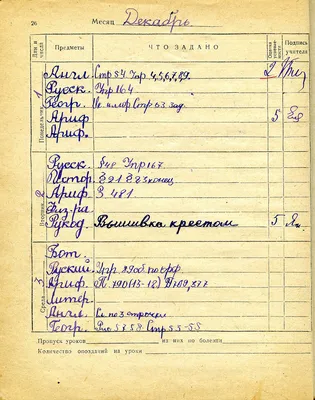 26 Месяц Декабрь
Дни и числа Предметы ЧТО ЗАДАНО Оценка успеваемости Подпись учителя
Понедельник 1
Англ. Стр 54 Упр 4,5,6,7,89. 2
Русск. Упр 164
Геогр. Стр 53 зад.
Ариф 5
Ариф.
Вторник 2
Русск. §48 Упр 167
Истор. § 21 § 23 конец
Ариф З 481
Физ-ра
Рукод. Вышивка крестом 5
Среда 3
Бот.
Русский. Упр
Ариф. 790 (13-18)
Литер.
Англ.
Геогр. Рис 57 58 Стр 55-
Пропуск уроков из них по болезни
Количество опозданий на уроки